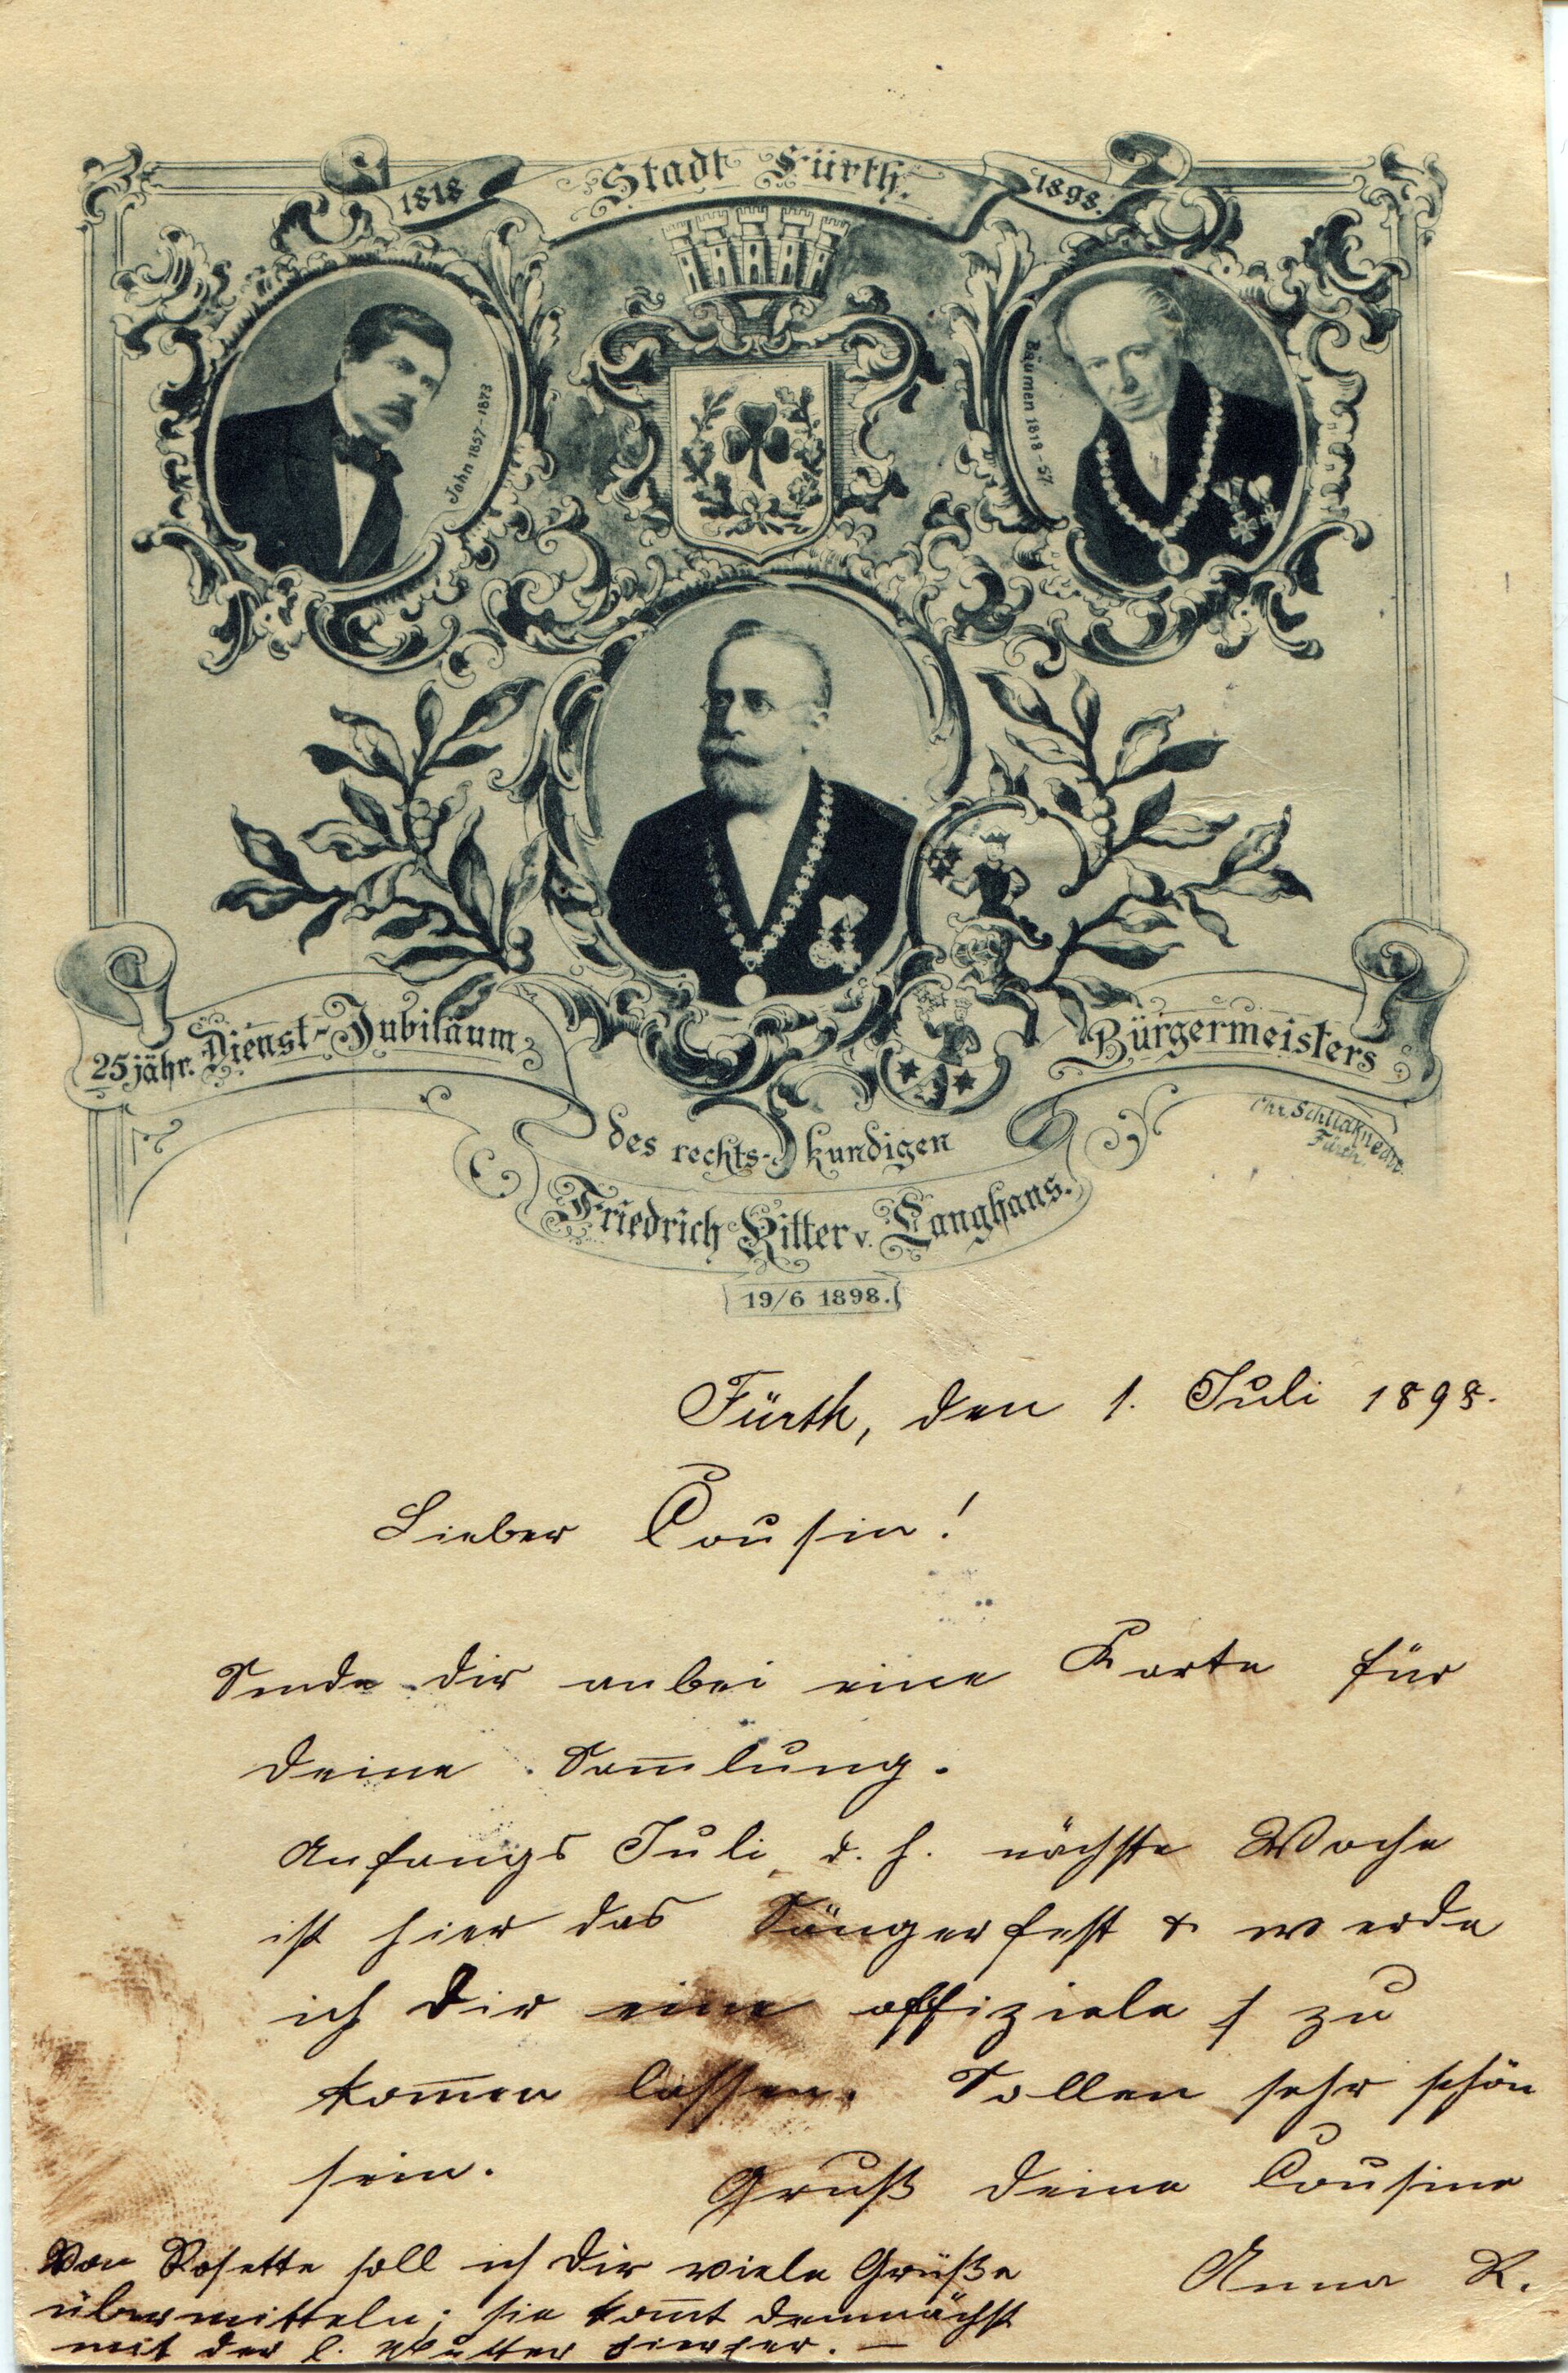 1818 Stadt Fürth. 1898.
John 1857-1873
Bäumen 1818-57.
25jähr. Dienst-Jubiläum
des rechts-kundigen
Bürgermeisters
Friedrich Ritter v. Langhans.
19/6 1898.
Fürth.
Fürth, den 1. Juli 1898.
Lieber Cousin!
Sende dir anbei eine Karte für
deine Sam̄lung.
Anfangs Juli, d. h. nächste Woche
ist hier das Sängerfest & werde
ich Dir eine offiziele zu
kom̄en lassen. Sollen sehr schön
sein.
Gruß deine Cousine
Anna R.
Von Rosette soll ich dir viele Grüße
übermitteln; sie kom̄t demnächst
mit der l. Mutter hierher. —